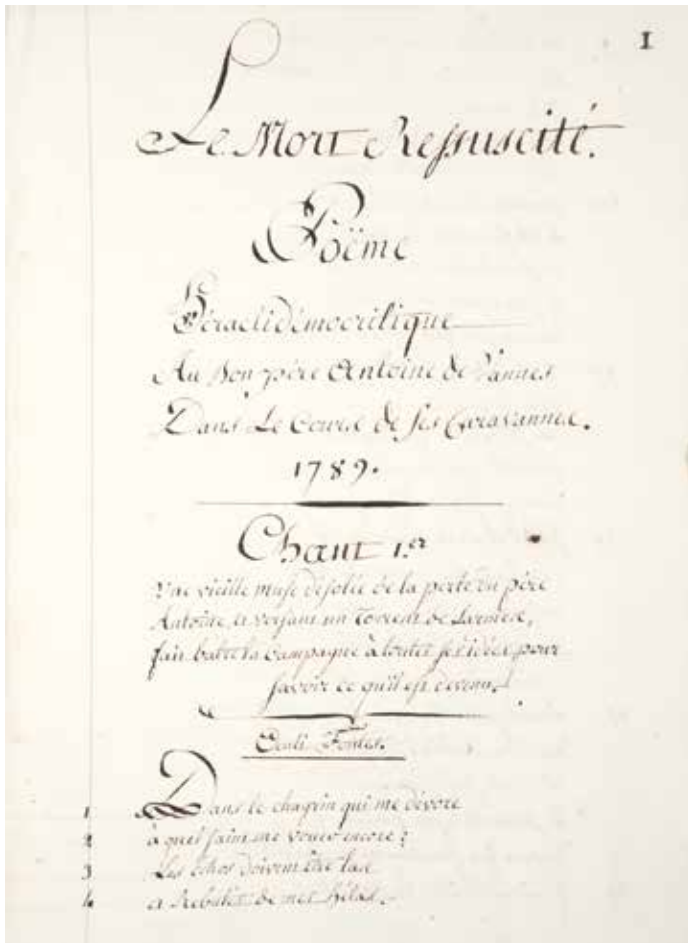 1
Le Mort Ressuscité.
Poëme
Héraclidémocritique
Au bon père Antoine de Vannes
Dans Le Cours de ses Caravannes.
1789.
Chant 1er
Une vieille muse désolée de la perte du père
Antoine, et versant un torrent de Larmes,
fait batre la campagne à toutes ses idées pour
savoir ce qu'il est devenu.
Oculi Fontes.
1 Dans le chagrin qui me dévore
2 à quel saint me vouer encore ?
3 Les échos doivent être las
4 et Rebutés de mes hélas.